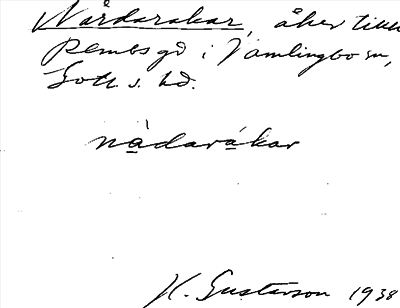 Nårdaråkar, åker till
Rembs gd i Vamlingbo sn,
Gotl. s. hd.
nàdarákar
H. Gustavson 1938